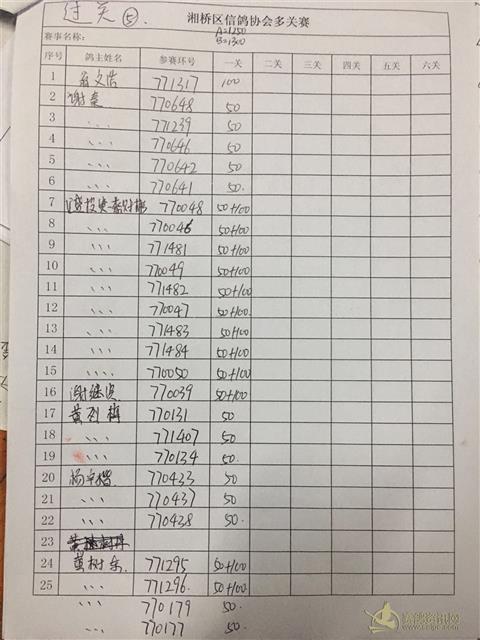 过关⑤.
湘桥区信鸽协会多关赛
赛事名称: A=1250
B=1300
序号 鸽主姓名 参赛环号 一关 二关 三关 四关 五关 六关
1 771317 100
2 谢 770648 50
3 、、、 771239 50
4 、、、 770646 50
5 、、、 770642 50
6 、、、 770641 50.
7 770048 50+100
8 、、、 770046 50+100
9 、、、 771481 50+100
10 、、、 770049 50+100
11 、、、 771482 50+100
12 、、、 770047 50+100
13 、、、 771483 50+100
14 、、、 771484 50+100
15 、、、 770050 50+100
16 谢继 770039 50+100
17 黄 770131 50
18 、、、 771407 50
19 、、、 770134 50.
20 杨 770433 50.
21 、、、 770437 50.
22 、、、 770438 50.
23
24 黄树 771295 50+100
25 、、、 771296. 50+100
、、、 770179 50
、、、 770177 50.
赛鸽资讯网